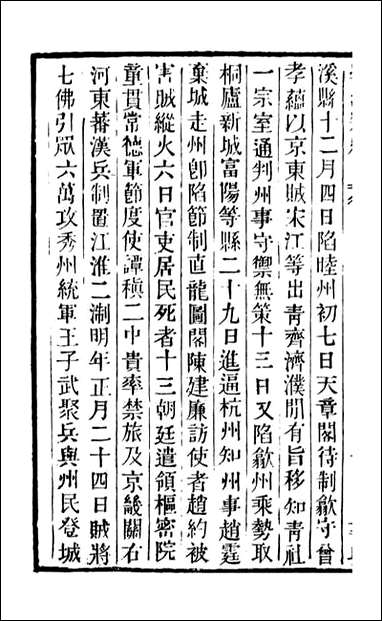 溪縣十二月四日陷睦州初七日天章閣待制歙守曾
孝蘊以京東賊宋江等出青齊濟濮閒有旨移知青社
一宗室通判州事守禦無策十三日又陷歙州乘勢取
桐廬新城富陽等縣二十九日進逼杭州知州事趙霆
棄城走州卽陷節制直龍圖閣陳建廉訪使者趙約被
害賊縱火六日官吏居民死者十三朝廷遣領樞密院
童貫常德軍節度使譚稹二中貴率禁旅及京畿關右
河東蕃漢兵制置江淮二淛明年正月二十四日賊將
七佛引眾六萬攻秀州統軍王子武聚兵與州民登城